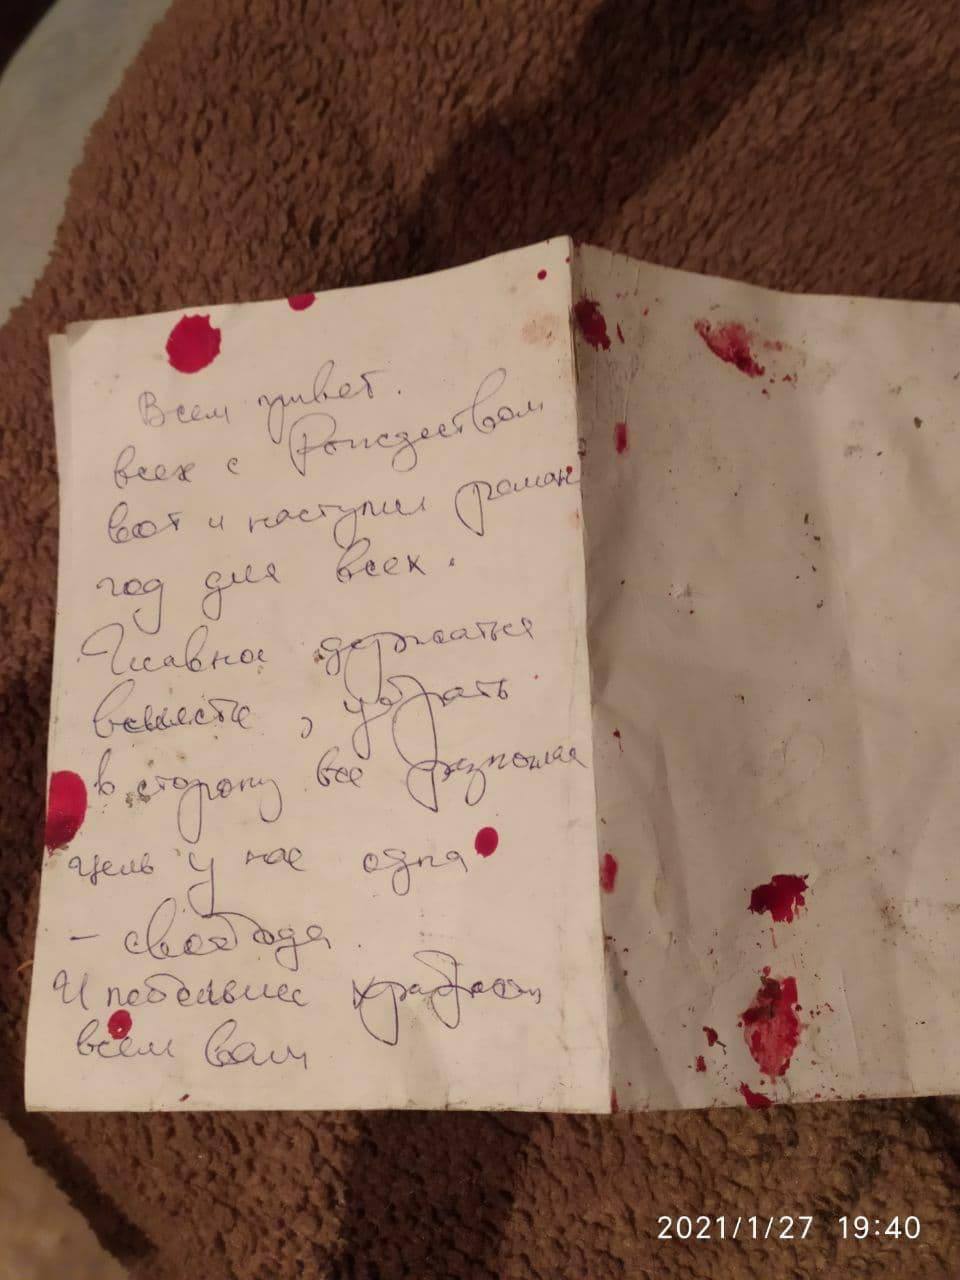 Всем привет.
всех с Рождеством
вот и наступил роман
год для всех.
Главное держаться
вместе, убрать
в сторону все
цель у нас одна
- свобода
И
всем вам
2021/1/27 19:40